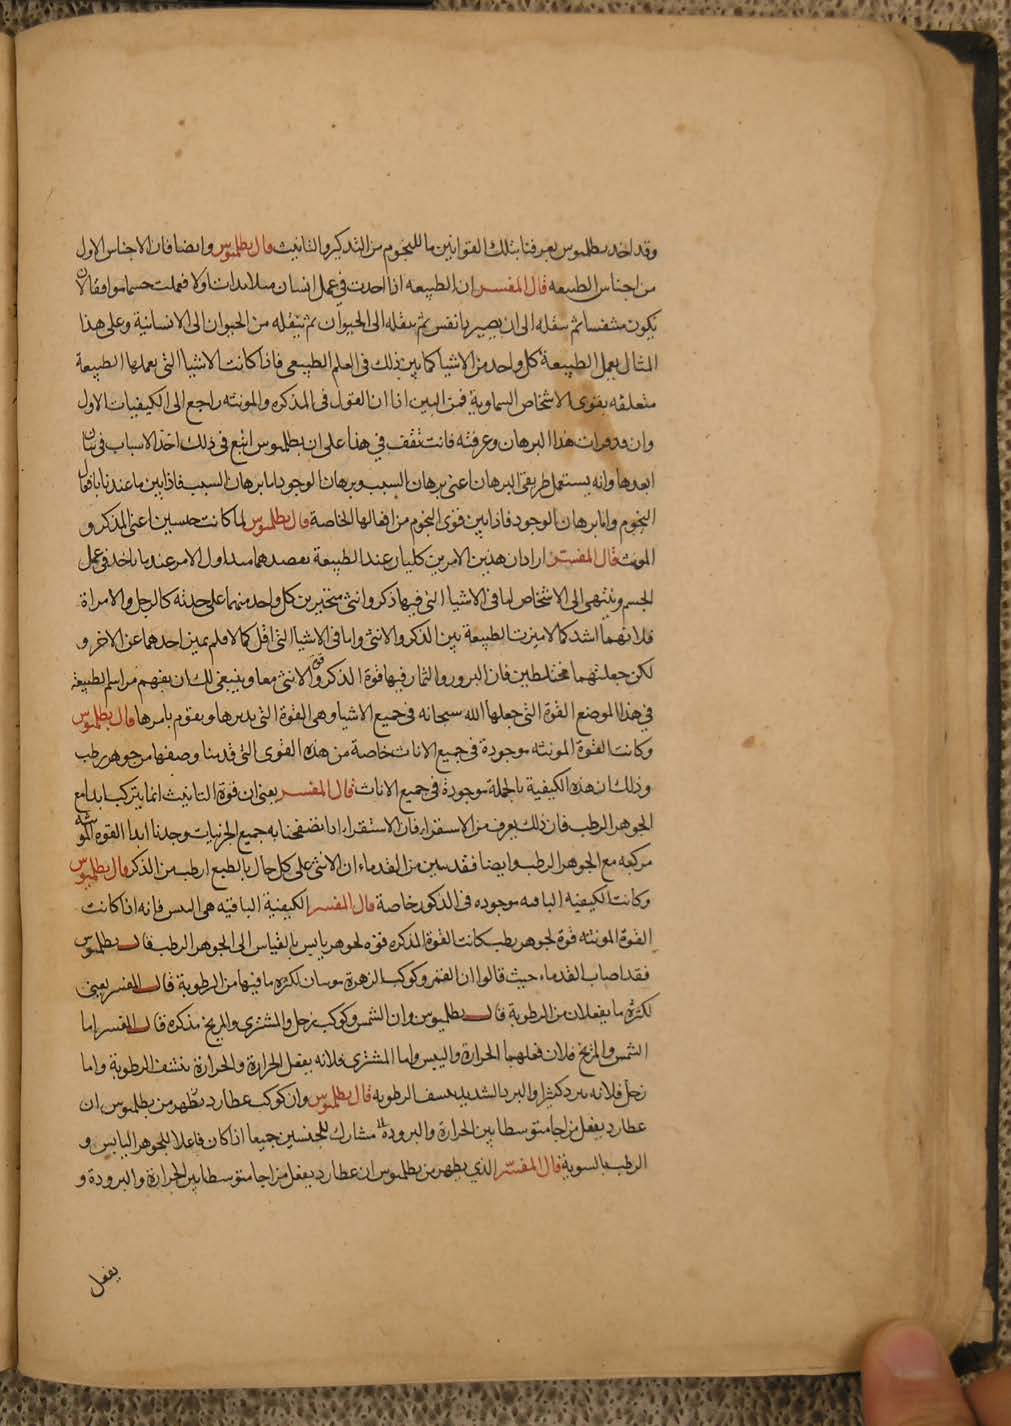 وقد اخد بطلميوس يعرفنا بتلك القوانين ما للنجوم من التذكير والتانيث قال بطلميوس وايضا فان الاجناس الاول
من اجناس الطبيعه قال المفسر ان الطبيعه اذا احدت في عمل انسان مثلا بدات اولا فعملت جسما موافقا لان
يكون متنفسا ثم تنقله الى ان يصير ذا نفس ثم تنقله الى الحيوان ثم تنقله من الحيوان الى الانسانية وعلى هذا
المثال يعمل الطبيعة كل واحد من الاشيا كما بين ذلك في العلم الطبيعي فاذا كانت الاشيا التي يعملها الطبيعة
متعلقه بقوى الاشخاص السماوية فمن البين اذا ان القول في المذكره والمونثه راجع الى الكيفيات الاول
وان قد قرات هذا البرهان وعرفته فانت تقف في هذا على ان بطلميوس اتبع في ذلك اخذ الاسباب في بيان
ابعدها وانه يستعمل طريقي البرهان اعني برهان السبب وبرهان الوجود اما برهان السبب فاذا بين ما عندنا بافعال
النجوم واما برهان الوجود فاذا بين قوى النجوم من افعالها الخاصة قال بطلميوس لما كانت جنسين اعني المذكر و
المونث قال المفسر اراد ان هذين الامرين كليان عند الطبيعة تقصدهما منذ اول الامر عندما ياخد في عمل
الجسم وتنتهي الى الاشخاص اما في الاشيا التي فيها ذكر وانثى متحيزين كل واحد منهما على حدته كالرجل والامراة
فلانهما اشد كمالا ميزت الطبيعة بين الذكر والانثى واما في الاشيا التي اقل كمالا فلم يميز احدهما عن الاخر و
لكن جعلتهما مختلطين فان البزور والثمار فيها قوة الذكر وقوة الانثى معا وينبغي لك ان تفهم من اسم الطبيعة
في هذا الموضع القوة التي جعلها الله سبحانه في جميع الاشيا وهي القوة التي يدبرها ويقوم بامرها قال بطلميوس
وكانت القوة المونثه موجودة في جميع الاناث خاصة من هذه القوى التي قدمنا وصفها من جوهر رطب
وذلك ان هذه الكيفية بالجملة موجودة في جميع الاناث قال المفسر يعني ان قوة التانيث انما يتركب ابدا مع
الجوهر الرطب فان ذلك يعرف من الاستقراء فان الاستقراء اذا تصفحنا به جميع الجزئيات وجدنا ابدا القوه المونثه
مركبه مع الجوهر الرطب وايضا فقد تبين من القدماء ان الانثى على كل حال بالطبع ارطب من الذكر قال بطلميوس
وكانت الكيفيه الباقيه موجوده في الذكور خاصة قال المفسر الكيفية الباقيه هي اليبس فانه اذا كانت
القوة المونثه قوة لجوهر رطب كانت القوة المذكره قوه لجوهر يابس بالقياس الى الجوهر الرطب قال بطلميوس
فقد اصاب القدماء حيث قالوا ان القمر وكوكب الزهرة مونثان لكثره ما فيها من الرطوبة قال المفسر يعني
لكثرة ما يفعلان من الرطوبة قال بطلميوس وان الشمس وكوكب زحل والمشتري والمريخ مذكره قال المفسر اما
الشمس والمريخ فلان فعلهما الحرارة واليبس واما المشتري فلانه يفعل الحرارة والحرارة تنشف الرطوبة واما
زحل فلانه يبرد كثيرا والبرد الشديد ينشف الرطوبه قال بطلميوس وان كوكب عطارد يظهر من بطلميوس ان
عطارد يفعل مزاجا متوسطا بين الحرارة والبرودة مشارك للجنسين جميعا اذا كان فاعلا للجوهر اليابس و
الرطب بالسوية قال المفسر الذي يظهر من بطلميوس ان عطارد يفعل مزاجا متوسطا بين الحرارة والبرودة و
يفعل